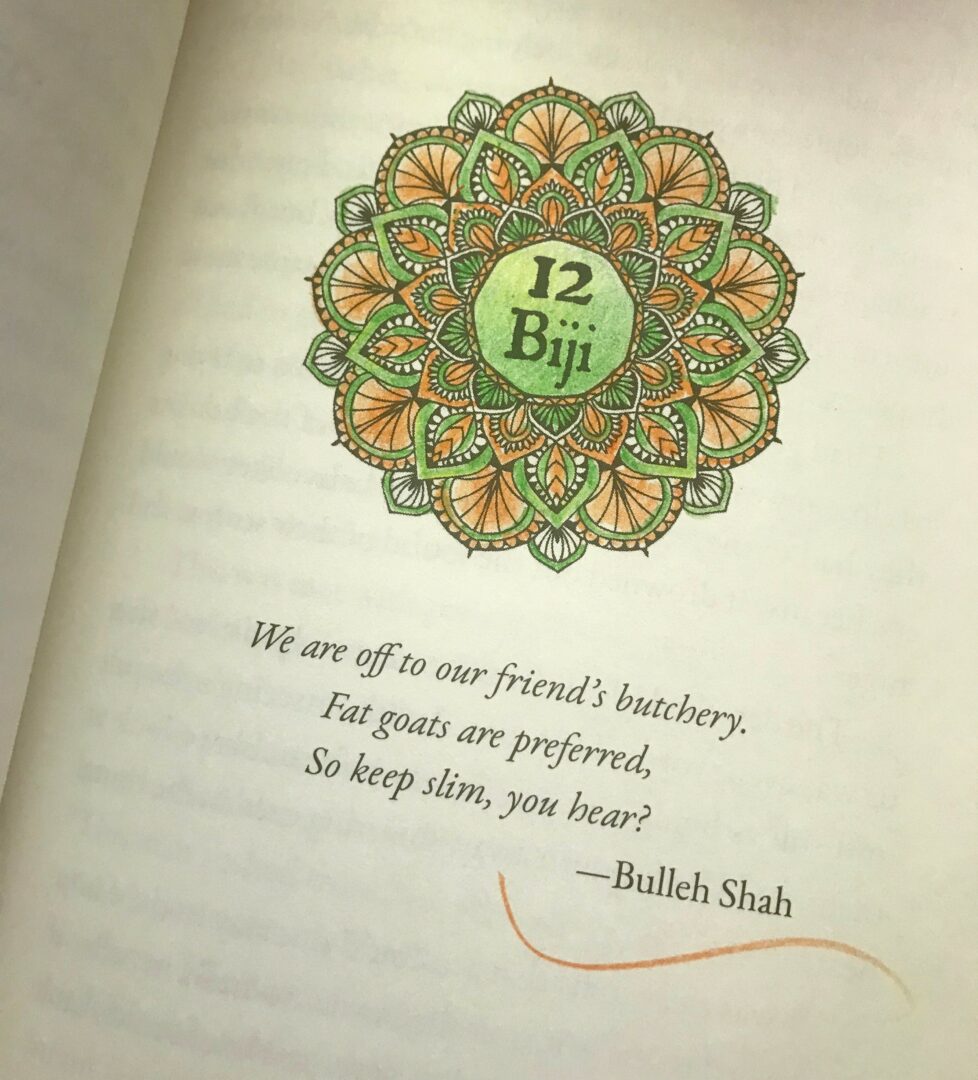 12
Biji
We are off to our friend's butchery.
Fat goats are preferred,
So keep slim, you hear?
—Bulleh Shah